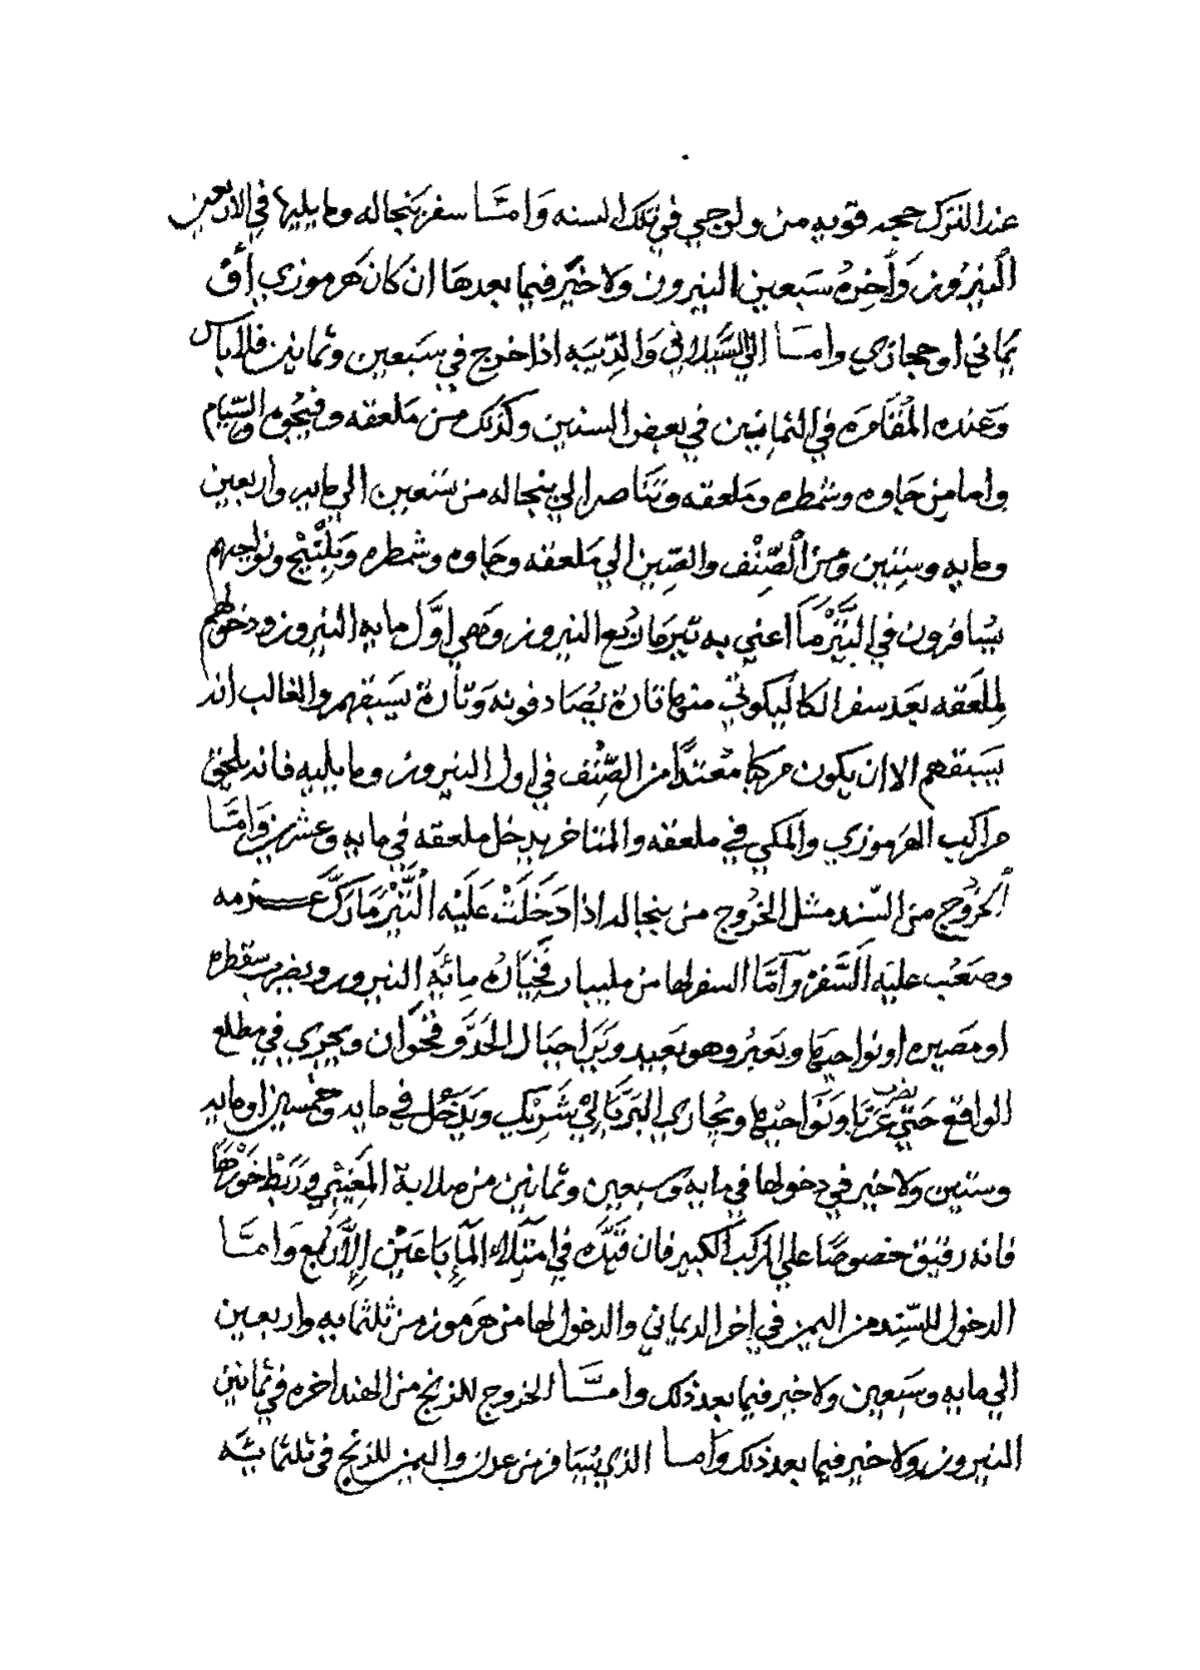 عند الترك حجه قويه من ولوجي في تلك السنه وَامَّا سفر بَنجاله وما يليها في الاربعين
النيرُوز وَآخرهُ سَبعين النيروز وَلا خَير فيما بعدها ان كان هَرموزي أوْ
يماني او حجازي وامَّا الي السَّيلاني وَالدّيبَه اذا خرج في سَبعين وثمانين فلا باس
وَعنده المُقَاوره في الثمانين في بعض السنين وكذلك من مَلعقه وفيجُوه والسِّيَام
واما من جَاوه وشمطره ومَلعقه وتنَاصرا لي بنجاله من تسعين الي مايه واربعين
ومايه وسِتين وَمن الصِّنْف والصِّين الي مَلعقه وجاوه وشمطره وَبلِنْبج ونواحيهم
يسَافرون في التَّيْرمَا اعني به تيرمَاه رُبع النيروز وَهي اوَّل مايه النيروز ودخولهم
لِملَعَقه بعَد سفر الكاليكوتي منها تارةً يُصَادفونه وَتاَرةً يسَبقهم والغالب انه
يسَبقهم الا ان يكون مركبًا مُعتدًّا من الصِّنْف في اول النيروز وما يليه فانه يلحق
مراكب الهَرموزي والمكي في ملعقه والمتاخر يدخل ملعقه في مايه وعشرين وَامَّا
الخرُوج من السّند مثل الخُروج من بنجاله اذا دَخَلَتْ عَلَيْه التَّيْرمَا رَكَّ عـــزمه
وصَعُب عليَه السَّفرْ وَامَّا السفر لها من مليبار فَخيَارُه مِائَة النيروز ويضرب سقطره
او مَصيره او نواحيهَا ويَعبرُ وهو بعَيد ويَرَا جبَال الحَدّ وفَخوَان ويجري في مطلع
الواقع حَتي يضرب عَرَبَا وَنَوَاحيْها ويجُاري البَر بَّا إلي شَرِنك ويَدْخُل في مايه وخمْسين او مايه
وستين وَلا خير في دخولها في مايه وسبعين وثمانين من صلابة المغَيْبي وَرَبْط خَوْرهَا
فانه رقيق خصوصًا علي المركب الكبير فان قيَّده في امتلاء المآء بَاعَيْن إلاَّ رُبْع وَامَّا
الدخول للسِّند من اليمن في اخر الديماني والدخول لها من هَرموز من ثلثمايه واربعين
الي مايه وسَبعين ولا خير فيما بعد ذلك وامَّا الخروج للزنج من الهند اخره في ثمانين
النيروز وَلا خير فيما بعد ذلك وَامَّا الذي يُسَافر من عدن واليمن للزنج في ثلثمايَة